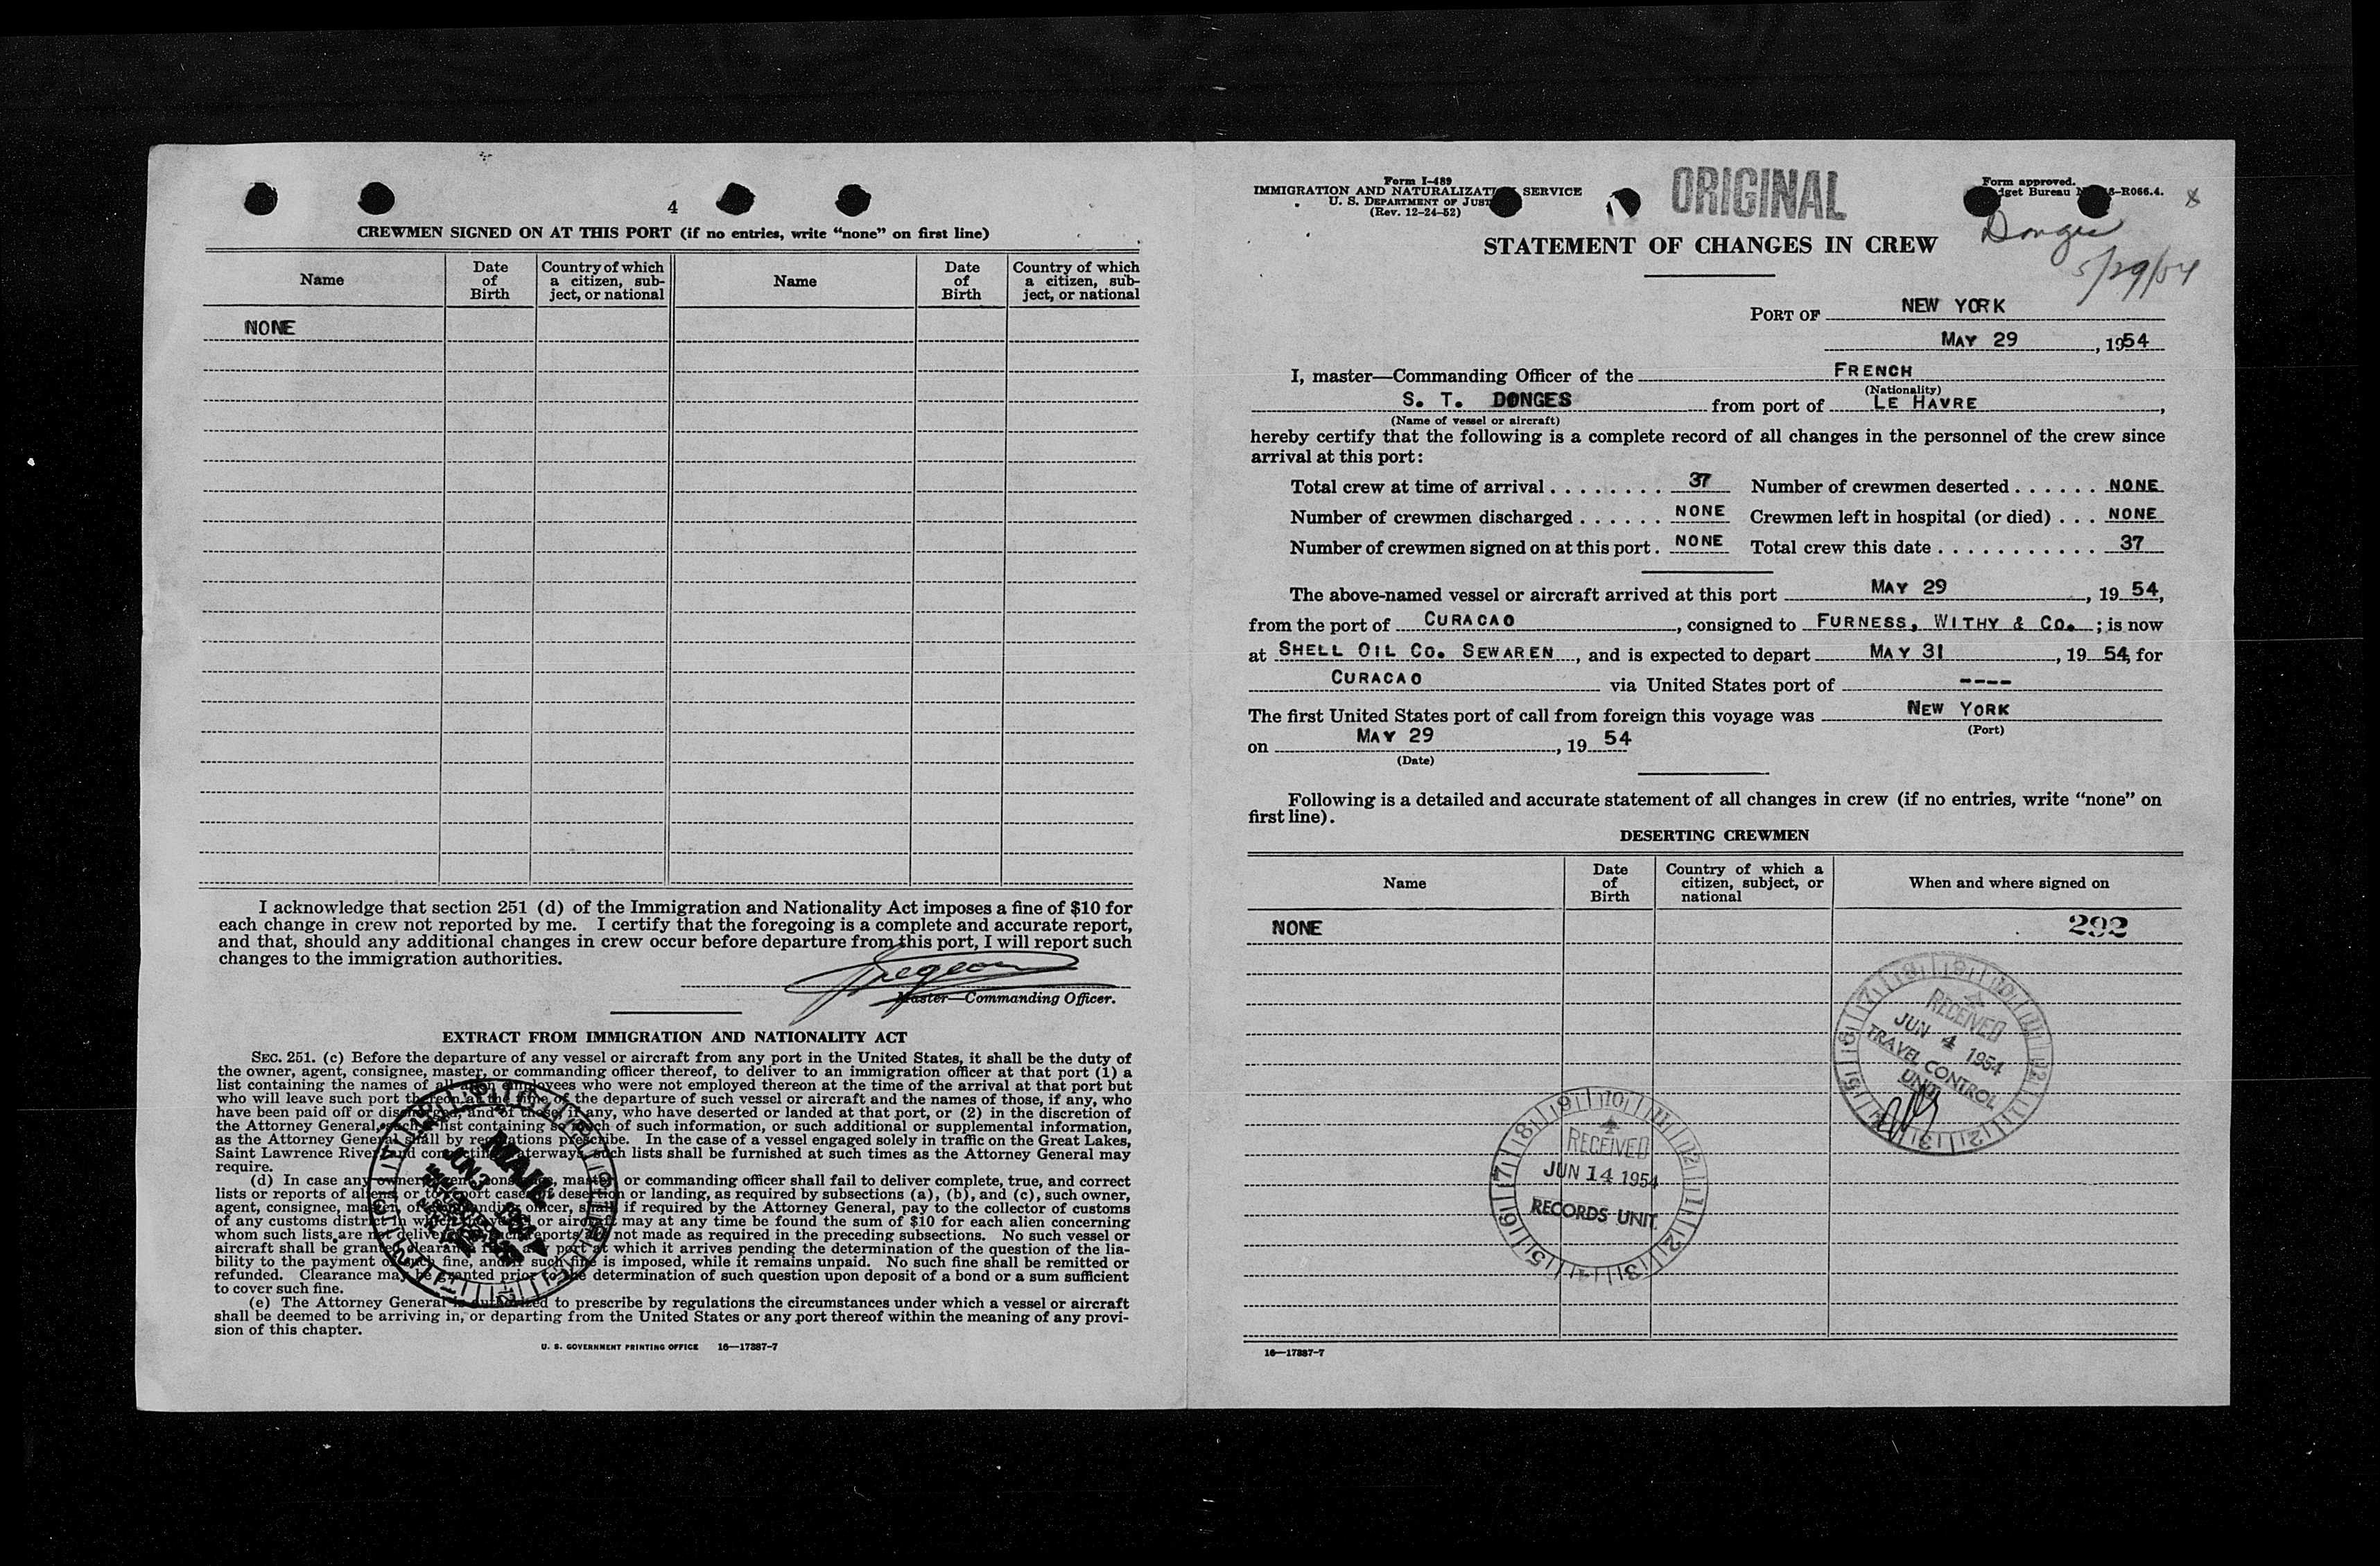 4
CREWMEN SIGNED ON AT THIS PORT (if no entries, write “none” on first line)
Name
Date of Birth
Country of which a citizen, subject, or national
Name
Date of Birth
Country of which a citizen, subject, or national
NONE
I acknowledge that section 251 (d) of the Immigration and Nationality Act imposes a fine of $10 for
each change in crew not reported by me. I certify that the foregoing is a complete and accurate report,
and that, should any additional changes in crew occur before departure from this port, I will report such
changes to the immigration authorities.
Master—Commanding Officer.
EXTRACT FROM IMMIGRATION AND NATIONALITY ACT
SEC. 251. (c) Before the departure of any vessel or aircraft from any port in the United States, it shall be the duty of
the owner, agent, consignee, master, or commanding officer thereof, to deliver to an immigration officer at that port (1) a
list containing the names of all alien employees who were not employed thereon at the time of the arrival at that port but
who will leave such port thereon at the time of the departure of such vessel or aircraft and the names of those, if any, who
have been paid off or discharged, and of those, if any, who have deserted or landed at that port, or (2) in the discretion of
the Attorney General, such a list containing so much of such information, or such additional or supplemental information,
as the Attorney General shall by regulations prescribe. In the case of a vessel engaged solely in traffic on the Great Lakes,
Saint Lawrence River, and connecting waterways, such lists shall be furnished at such times as the Attorney General may
require.
(d) In case any owner, agent, consignee, master, or commanding officer shall fail to deliver complete, true, and correct
lists or reports of aliens, or to report cases of desertion or landing, as required by subsections (a), (b), and (c), such owner,
agent, consignee, master, or commanding officer, shall, if required by the Attorney General, pay to the collector of customs
of any customs district in which the vessel or aircraft may at any time be found the sum of $10 for each alien concerning
whom such lists are not delivered or such reports are not made as required in the preceding subsections. No such vessel or
aircraft shall be granted clearance from any port at which it arrives pending the determination of the question of the lia-
bility to the payment of such fine, and if such fine is imposed, while it remains unpaid. No such fine shall be remitted or
refunded. Clearance may be granted prior to the determination of such question upon deposit of a bond or a sum sufficient
to cover such fine.
(e) The Attorney General is authorized to prescribe by regulations the circumstances under which a vessel or aircraft
shall be deemed to be arriving in, or departing from the United States or any port thereof within the meaning of any provi-
sion of this chapter.
MAIL
JUN 3 1954
U. S. GOVERNMENT PRINTING OFFICE 16—17887-7
Form I-489
IMMIGRATION AND NATURALIZATION SERVICE
U. S. DEPARTMENT OF JUSTICE
(Rev. 12-24-52)
ORIGINAL
Form approved.
Budget Bureau -R066.4.
Donges
5/29/54
STATEMENT OF CHANGES IN CREW
PORT OF NEW YORK
MAY 29, 1954
I, master—Commanding Officer of the FRENCH
(Nationality)
S. T. DONGES from port of LE HAVRE,
(Name of vessel or aircraft)
hereby certify that the following is a complete record of all changes in the personnel of the crew since
arrival at this port:
Total crew at time of arrival . . . . . . . . 37 Number of crewmen deserted . . . . . . NONE
Number of crewmen discharged . . . . . . NONE Crewmen left in hospital (or died) . . . NONE
Number of crewmen signed on at this port . NONE Total crew this date . . . . . . . . . . . . 37
The above-named vessel or aircraft arrived at this port MAY 29, 19 54,
from the port of CURACAO, consigned to FURNESS, WITHY & CO. ; is now
at SHELL OIL CO. SEWAREN, and is expected to depart MAY 31, 19 54, for
CURACAO via United States port of ----
The first United States port of call from foreign this voyage was NEW YORK
(Port)
on MAY 29, 19 54
(Date)
Following is a detailed and accurate statement of all changes in crew (if no entries, write “none” on
first line).
DESERTING CREWMEN
Name
Date of Birth
Country of which a citizen, subject, or national
When and where signed on
NONE
292
RECEIVED
JUN 4 1954
TRAVEL CONTROL
UNIT
RECEIVED
JUN 14 1954
RECORDS UNIT
16—17887-7